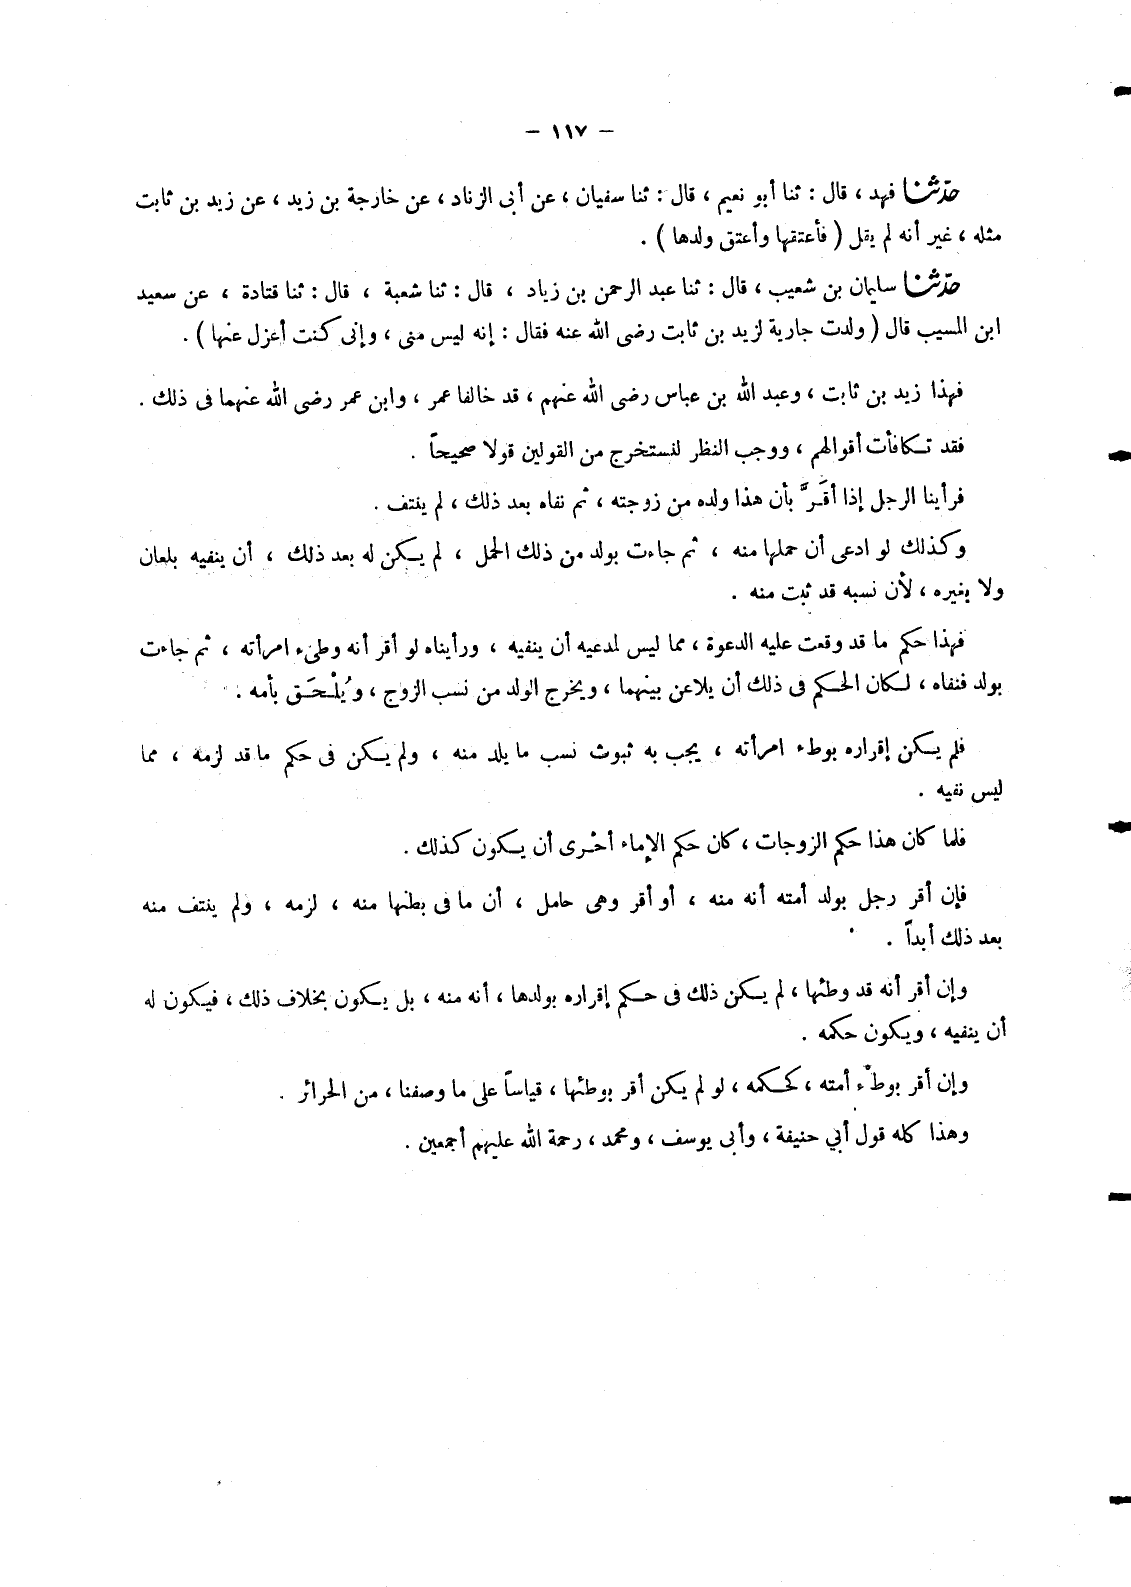 – ١١٧ –
حدّثنا فهد ، قال : ثنا أبو نعيم ، قال : ثنا سفيان ، عن أبى الزناد ، عن خارجة بن زيد ، عن زيد بن ثابت
مثله ، غير أنه لم يقل ( فأعتقها وأعتق ولدها ) .
حدّثنا سليمان بن شعيب ، قال : ثنا عبد الرحمن بن زياد ، قال : ثنا شعبة ، قال : ثنا قتادة ، عن سعيد
ابن المسيب قال ( ولدت جارية لزيد بن ثابت رضى الله عنه فقال : إنه ليس منى ، وإنى كنت أعزل عنها ) .
فهذا زيد بن ثابت ، وعبد الله بن عباس رضى الله عنهم ، قد خالفا عمر ، وابن عمر رضى الله عنهما فى ذلك .
فقد تكافأت أقوالهم ، ووجب النظر لنستخرج من القولين قولا صحيحاً .
فرأينا الرجل إذا أقَرَّ بأن هذا ولده من زوجته ، ثم نفاه بعد ذلك ، لم ينتف .
وكذلك لو ادعى أن حملها منه ، ثم جاءت بولد من ذلك الحمل ، لم يكن له بعد ذلك ، أن ينفيه بلعان
ولا بغيره ، لأن نسبه قد ثبت منه .
فهذا حكم ما قد وقعت عليه الدعوة ، مما ليس لمدعيه أن ينفيه ، ورأيناه لو أقر أنه وطىء امرأته ، ثم جاءت
بولد فنفاه ، لكان الحكم فى ذلك أن يلاعن بينهما ، ويخرج الولد من نسب الزوج ، ويُلْحَق بأمه .
فلم يكن إقراره بوطء امرأته ، يجب به ثبوت نسب ما يلد منه ، ولم يكن فى حكم ما قد لزمه ، مما
ليس نفيه .
فلما كان هذا حكم الزوجات ، كان حكم الإماء أحْرى أن يكون كذلك .
فإن أقر رجل بولد أمته أنه منه ، أو أقر وهى حامل ، أن ما فى بطنها منه ، لزمه ، ولم ينتف منه
بعد ذلك أبداً .
وإن أقر أنه قد وطئها ، لم يكن ذلك فى حكم إقراره بولدها ، أنه منه ، بل يكون بخلاف ذلك ، فيكون له
أن ينفيه ، ويكون حكمه .
وإن أقر بوطْء أمته ، كحكمه ، لو لم يكن أقر بوطئها ، قياساً على ما وصفنا ، من الحرائر .
وهذا كله قول أبي حنيفة ، وأبى يوسف ، ومحمد ، رحمة الله عليهم أجمعين .